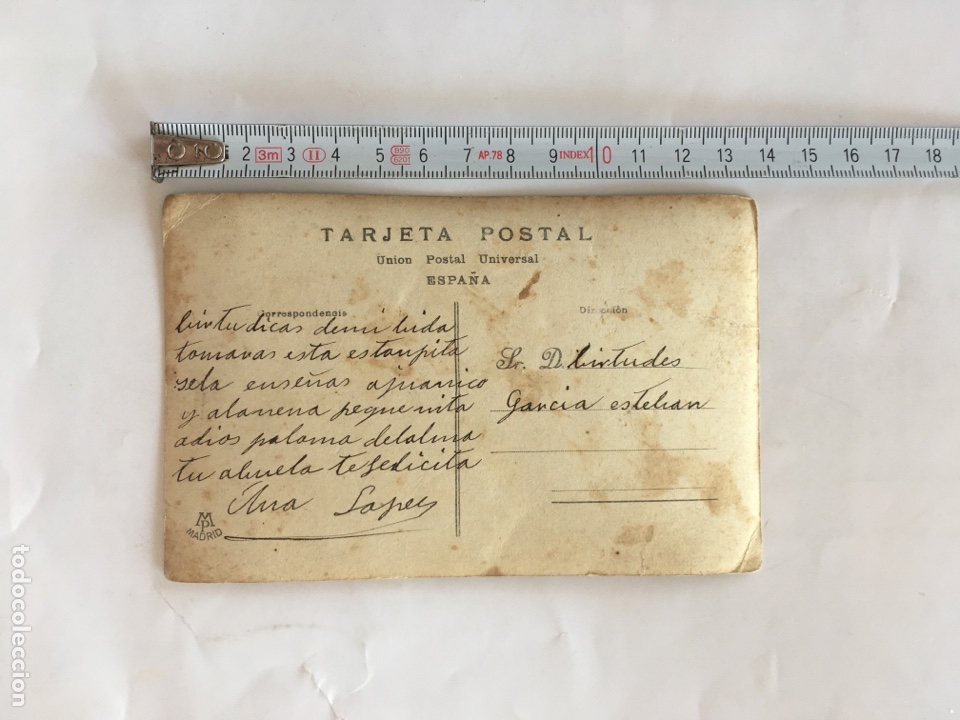 2 3m 3 II 4 5 6 7 AP.78 8 9 INDEX 10 11 12 13 14 15 16 17 18
TARJETA POSTAL
Union Postal Universal
ESPAÑA
Correspondencia
birtudicas demi bida
tomaras esta estanpita
sela enseñas ajuanico
y alanena pequenita
adios paloma delalma
tu abuela tefedicita
Ana Lopes
MP
MADRID
Dirección
Sr. D. birtudes
Garcia esteban
todocoleccion